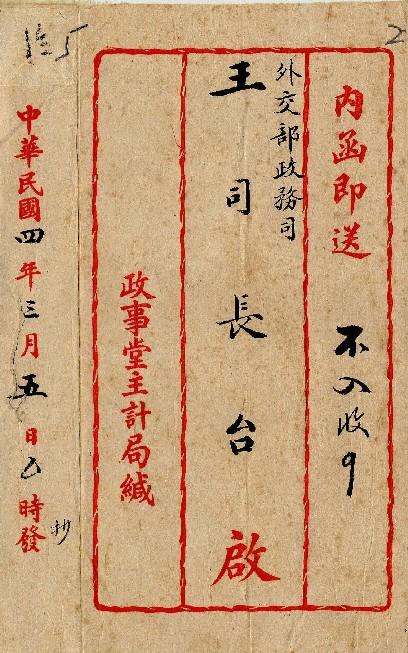 內函即送 不入收
外交部政務司
王司長台啟
政事堂主計局緘
中華民國四年三月五日 時發
抄